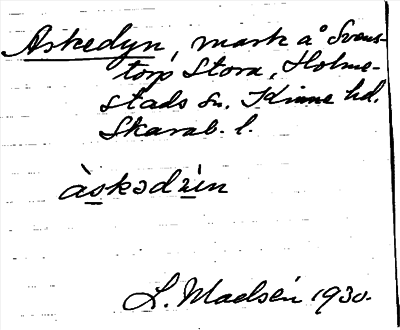 Askedyn, mark å Svens-
torp Stora, Holme-
stads sn. Kinne hd.
Skarab. l.
àskədỳin
L. Maelsén 1930.